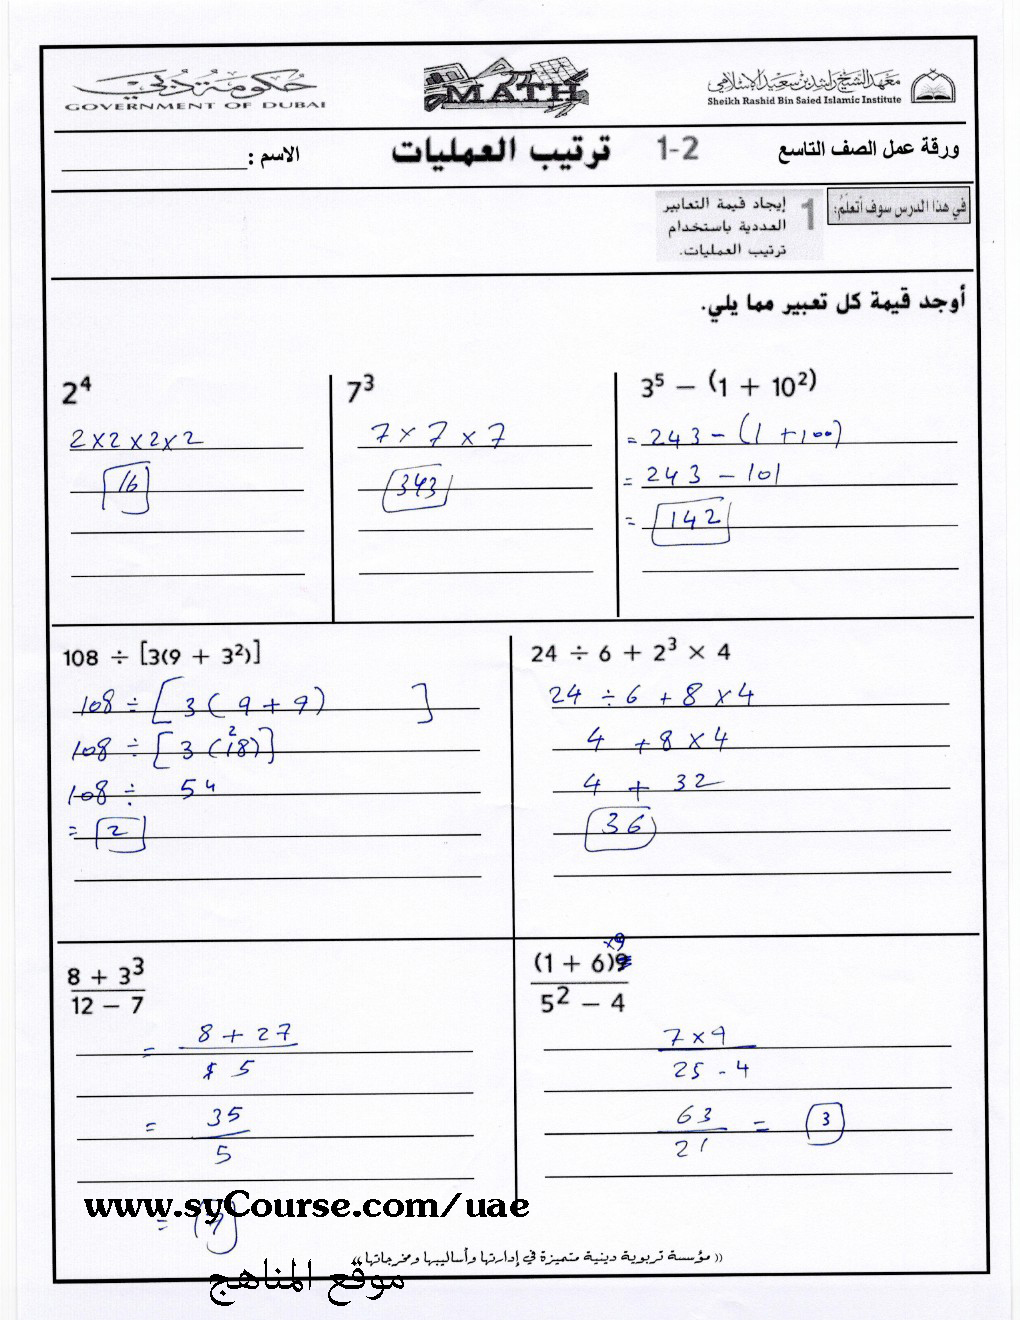 حكومة دبي
GOVERNMENT OF DUBAI
MATH
معهد الشيخ راشد بن سعيد الإسلامي
Sheikh Rashid Bin Saied Islamic Institute
ورقة عمل الصف التاسع
1-2 ترتيب العمليات
الاسم :
في هذا الدرس سوف أتعلم:
1 إيجاد قيمة التعابير
العددية باستخدام
ترتيب العمليات.
أوجد قيمة كل تعبير مما يلي.
2⁴
2 × 2 × 2 × 2
16
7³
7 × 7 × 7
343
3⁵ − (1 + 10²)
= 243 − (1 + 100)
= 243 − 101
= 142
108 ÷ [3(9 + 3²)]
108 ÷ [3 ( 9 + 9) ]
108 ÷ [3 (18)]
108 ÷ 54
= 2
24 ÷ 6 + 2³ × 4
24 ÷ 6 + 8 × 4
4 + 8 × 4
4 + 32
36
8 + 3³
12 − 7
= 8 + 27
5
= 35
5
= 7
×9
(1 + 6)9
5² − 4
7 × 9
25 - 4
63 = 3
21
www.syCourse.com/uae
(( مؤسسة تربوية دينية متميزة في إدارتها وأساليبها ومخرجاتها ))
موقع المناهج